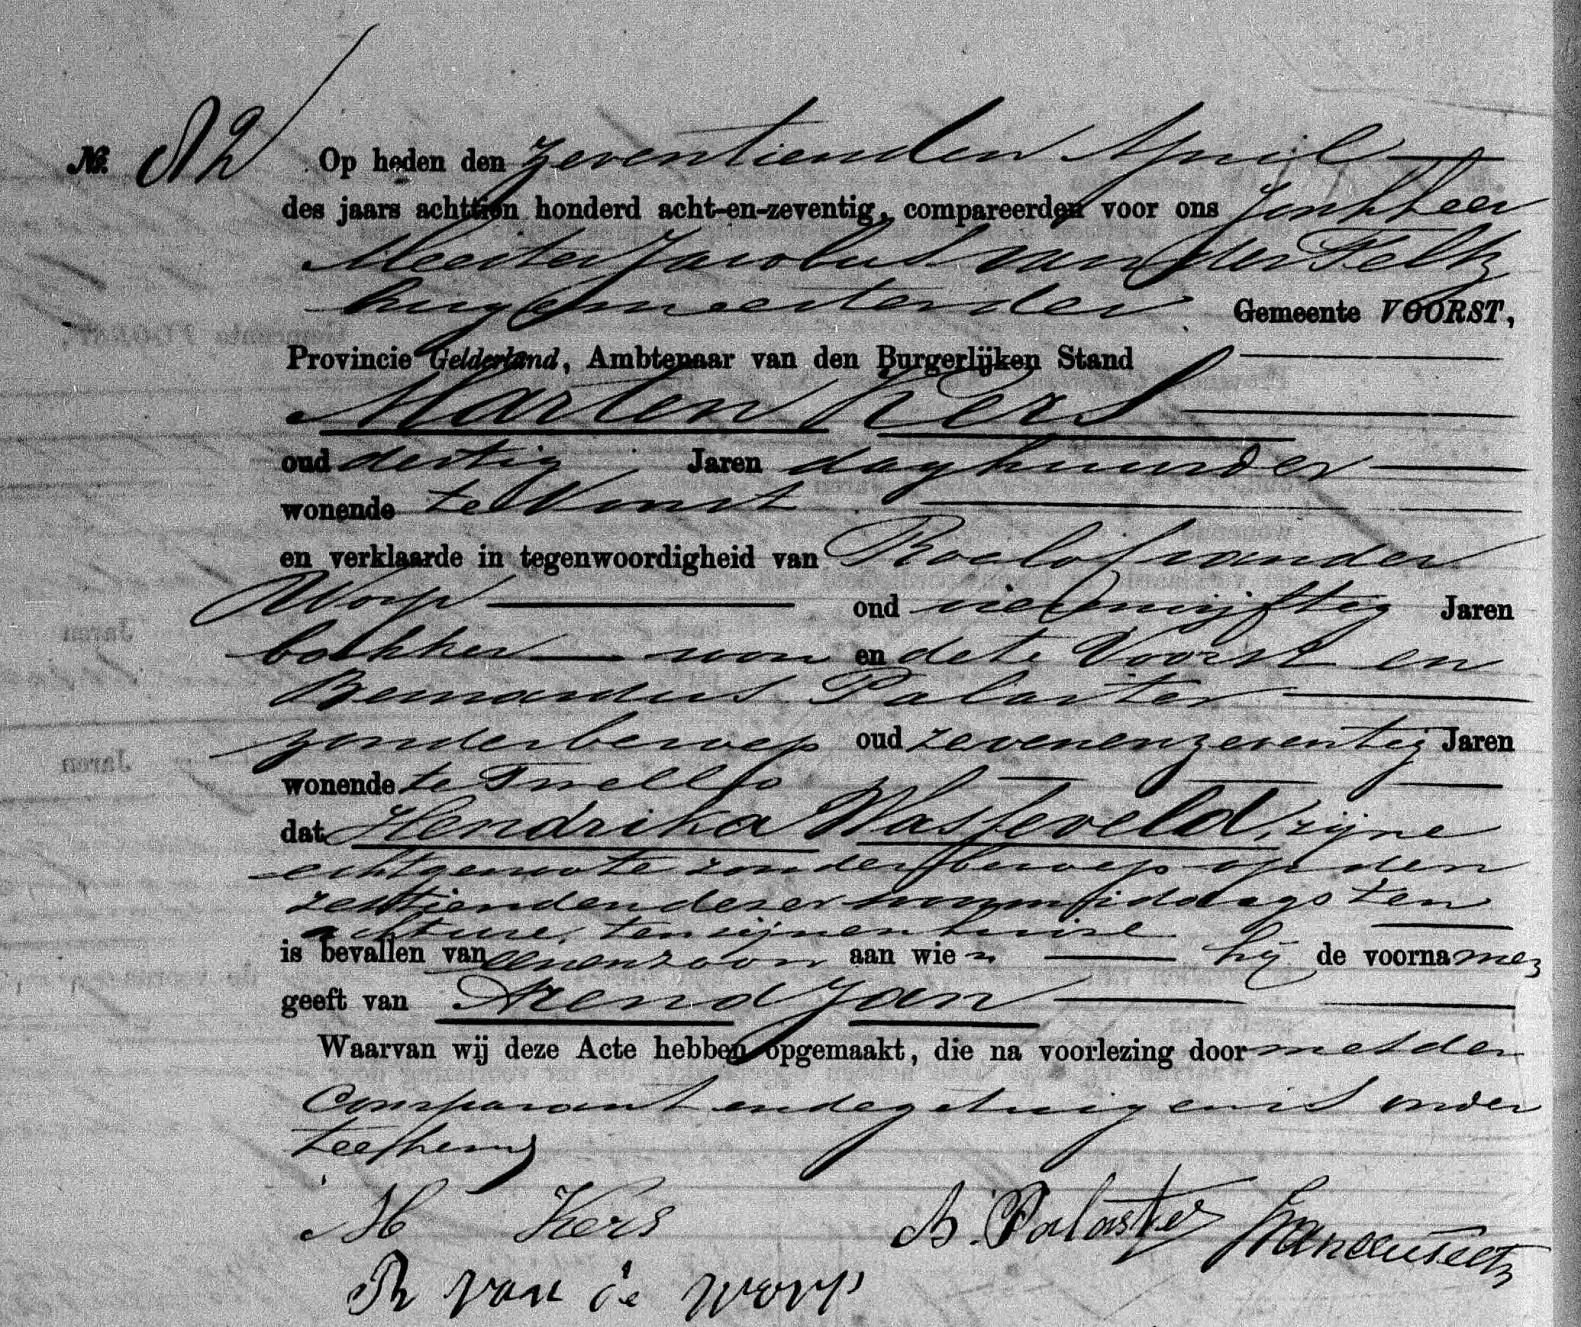 No. 82 Op heden den zeventienden April
des jaars achttien honderd acht-en-zeventig, compareerden voor ons Jonkheer
Meester Jacobus van der Feltz
burgemeester der Gemeente VOORST,
Provincie Gelderland, Ambtenaar van den Burgerlijken Stand
Marten Kers
oud dertig Jaren daghuurder
wonende te Voorst
en verklaarde in tegenwoordigheid van Roelof van der
Worp oud vierenvijftig Jaren
bakker won en de te Voorst en
Bernardus Palaster
zonder beroep oud zevenenzeventig Jaren
wonende te Twello
dat Hendrika Wasseveld, zijne
echtgenoote zonder beroep op den
zestienden dezer voormiddags ten
acht ure, ten zijnen huize
is bevallen van eenen zoon aan wien hij de voornamen
geeft van Arend Jan
Waarvan wij deze Acte hebben opgemaakt, die na voorlezing door met den
Comparant en de getuigen is onder
teekend
M Kers B. Palaster
R van de worp